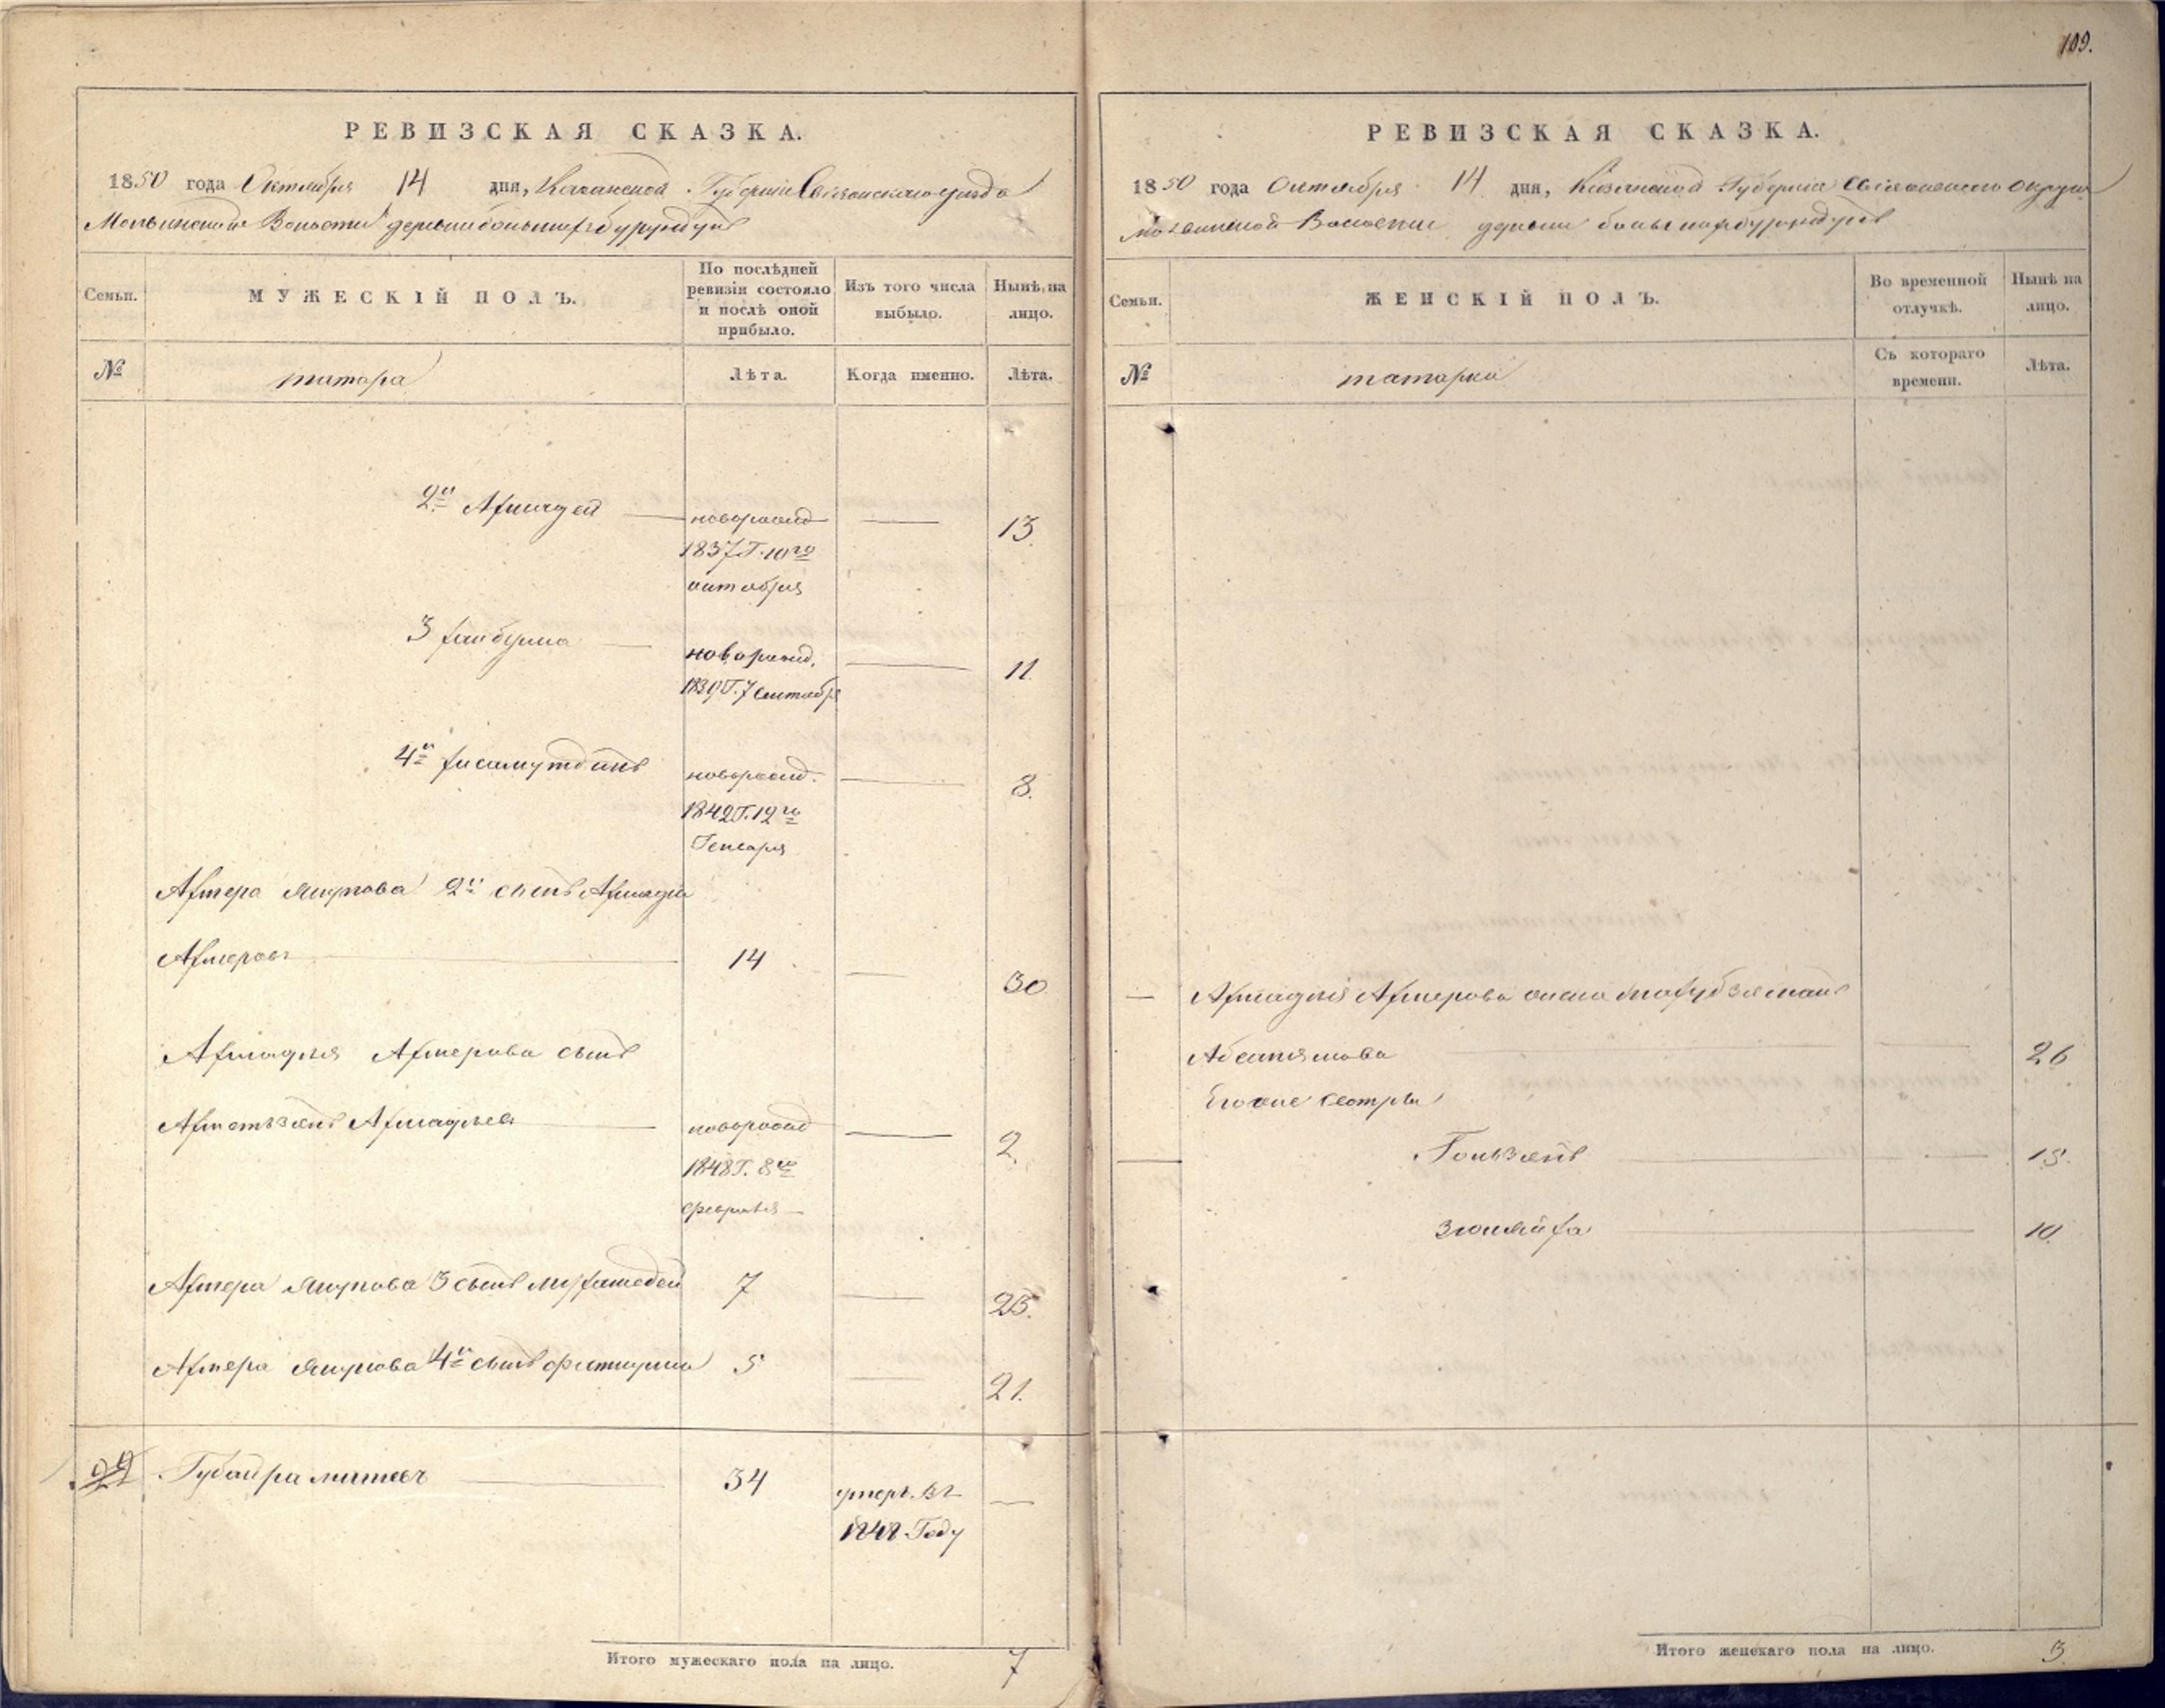 109.
РЕВИЗСКАЯ СКАЗКА.
1850 года Октября 14 дня, Казанской Губерніи Свіяжскаго уезда
Молвинской Волости деревни большихъ бурундуковъ
Семьи.
МУЖЕСКІЙ ПОЛЪ.
По послѣдней
ревизіи состояло
и послѣ оной
прибыло.
Изъ того числа
выбыло.
Нынѣ на
лицо.
№
татара
Лѣта.
Когда именно.
Лѣта.
2й Ахмадей новорожд 13.
1837 Г. 10го
октября
3 новорожд. 11.
1839 Г. 7 Сентября
4й Хисамутдинъ новорожд. 8.
1842 Г. 12го
Генваря
Ахмера Якупова 2й сынъ Ахмадей
Ахмеровъ 14 30
Ахмадея Ахмерова сынъ
Ахметьзянъ Ахмадеевъ новорожд 2.
1848 Г. 8го
февраля
Ахмера Якупова 3 сынъ 7 23.
Ахмера Якупова 4й сынъ 5 21.
22 34 умеръ въ
1848 Году
Итого мужескаго пола на лицо. 7
РЕВИЗСКАЯ СКАЗКА.
1850 года Октября 14 дня, Казанской Губерніи Свіяжскаго округа
Молвинской Волости деревни большихъ бурундуковъ
Семьи.
ЖЕНСКІЙ ПОЛЪ.
Во временной
отлучкѣ.
Нынѣ на
лицо.
№
татарки
Съ котораго
времени.
Лѣта.
Ахмадея Ахмерова жена
26
Егоже сестры
15.
Зюляйха 10.
Итого женскаго пола на лицо. 3.